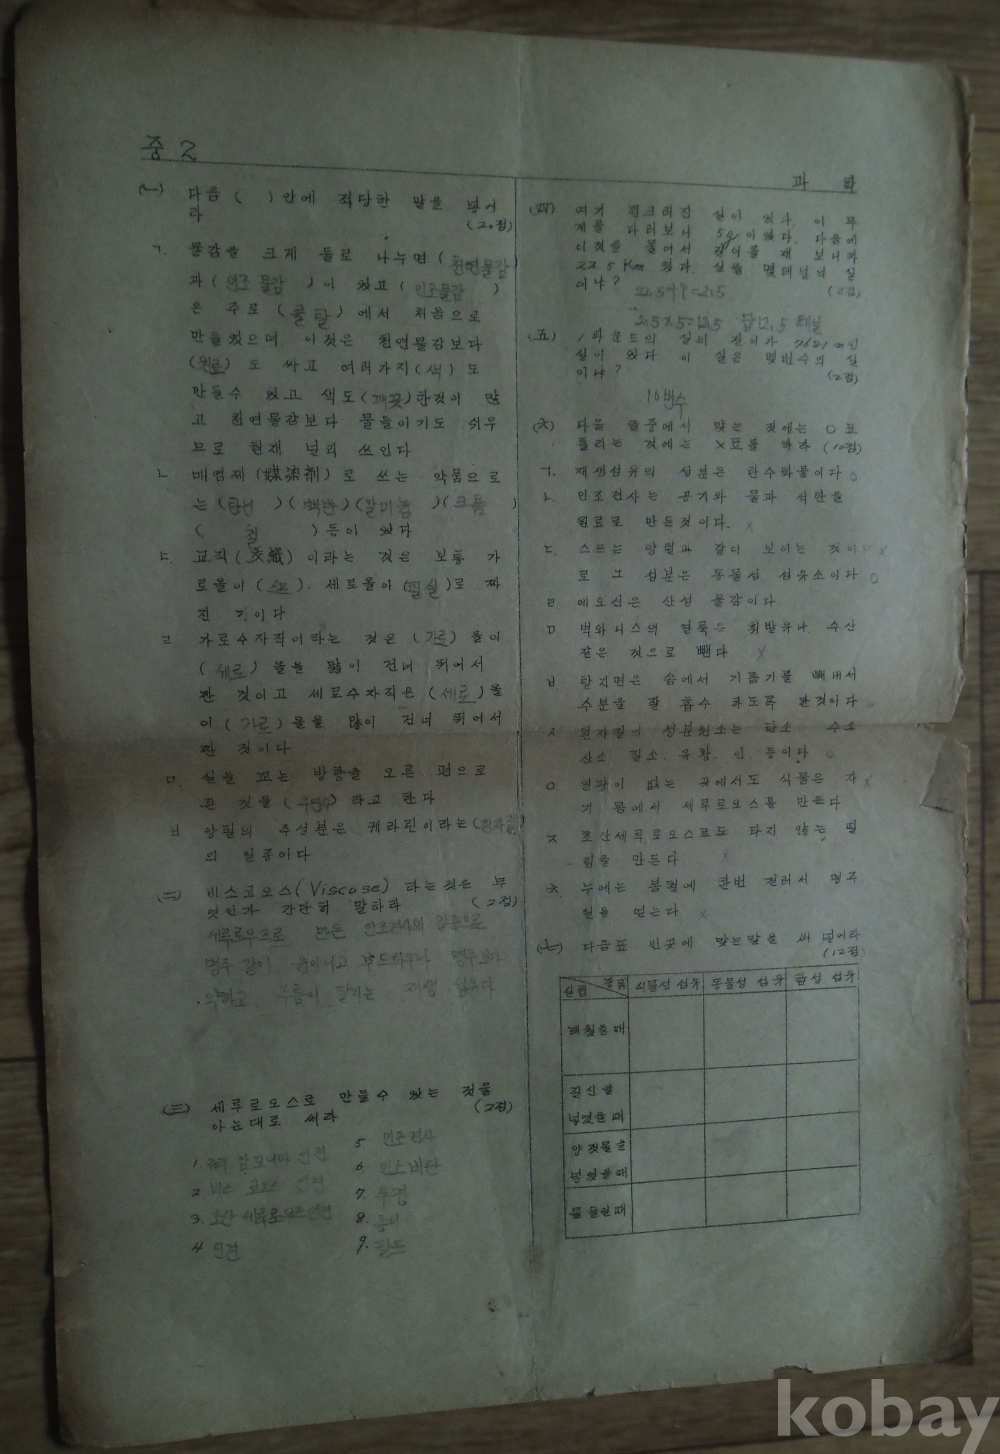 중 2
과 학
(一) 다음 ( ) 안에 적당한 말을 넣어
라 (20점)
ㄱ. 물감을 크게 둘로 나누면 (천연물감)
과 (인조 물감) 이 있고 (인조물감)
은 주로 (콜탈) 에서 처음으로
만들었으며, 이것은 천연물감보다
(원료) 도 싸고 여러가지 (색) 도
만들수 있고 색도 (깨끗) 한것이 많
고 천연물감보다 물들이기도 쉬우
므로 현재 널리 쓰인다
ㄴ 매염제 (媒染剤) 로 쓰는 약품으로
는 (탄닌) (백반) (알미늄) (크롬)
( 철 ) 등이 있다
ㄷ. 교직 (交織) 이라는 것은 보통 가
로올이 ( ), 세로올이 (털실) 로 짜
진 것이다
ㄹ 가로수자직이라는 것은 (가로) 올이
(세로) 올을 많이 건너 뛰어서
짠 것이고 세로수자직은 (세로) 올
이 (가로) 올을 많이 건너 뛰어서
짠 것이다
ㅁ. 실을 꼬는 방향을 오른 편으로
꼰 것을 ( ) 라고 한다
ㅂ 양털의 주성분은 케라틴이라는 ( )
의 일종이다
(二) 비스코오스 (Viscose) 라는것은 무
엇인가 간단히 말하라 (2점)
세루로우즈로 만든 인조견사의 일종으로
명주 같이 윤이나고 부드러우나 명주보다
약하고 구름이 잘지는 재생 섬유다
(三) 세루로오스로 만들수 있는 것을
아는대로 써라 (2점)
1. 구리 암모니아 인견
2. 비스 코오스 인견
3. 초산 세루로우즈인견
4 인견
5 인조견사
6 인조비단
7.
8. 종이
9.
(四) 여기 헝크러진 실이 있다. 이 무
게를 다러보니 5g 이였다. 다음에
이것을 풀어서 길이를 재 보니까
22.5 Km 였다. 실을 몇데닐의 실
이냐? (2점)
22.5÷9=2.5
2.5×5=12.5 답 12.5 데닐
(五) 1 파운드의 실의 길이가 인
실이 있다 이 실은 몇번수의 실
이냐? (2점)
10번수
(六) 다음 글중에서 맞는 것에는 ○표
틀리는 것에는 ×표를 하라 (10점)
ㄱ. 재생섬유의 성분은 탄수화물이다 ○
ㄴ. 인조견사는 공기와 물과 석탄을
원료로 만든것이다. ×
ㄷ. 스프는 양털과 같이 보이는 것이 ×
로 그 성분은 동물성 섬유소이다 ○
ㄹ 에오신은 산성 물감이다
ㅁ 벽와니스의 얼룩은 휘발유나 수산
같은 것으로 뺀다 ×
ㅂ 탈지면은 솜에서 기름기를 빼내서
수분을 잘 흡수 하도록 한것이다 ○
ㅅ 단자질의 성분원소는 탄소 수소
산소 질소. 유황. 인. 등이다 ○
ㅇ. 일광이 없는 곳에서도 식물은 자 ×
기 몸에서 세루로오스를 만든다
ㅈ 초산세루로오스로도 타지 않는 필
림을 만든다. ×
ㅊ. 누에는 봄철에 한번 길러서 명주
실을 얻는다 ×
(七) 다음표 빈곳에 맞는말을 써 넣어라
(12점)
실험 종류 식물성 섬유 동물성 섬유 합성 섬유
태웠을 때
질산을
넣었을 때
양잿물을
넣었을 때
물 들일 때
kobay